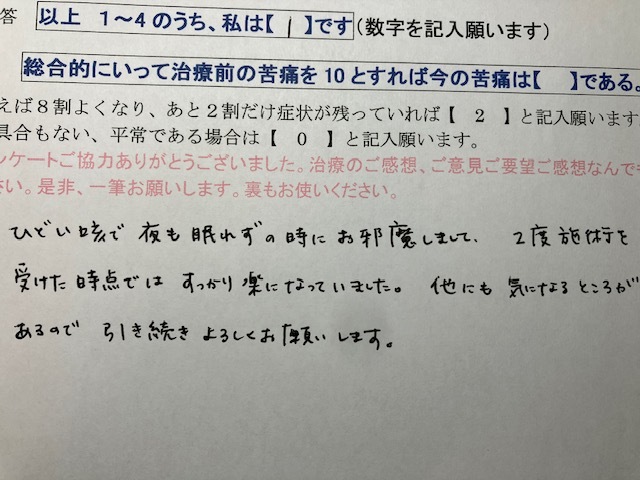 答 以上 1～4のうち、私は【 1 】です(数字を記入願います)
総合的にいって治療前の苦痛を10とすれば今の苦痛は【 】である。
えば８割よくなり、あと２割だけ症状が残っていれば【 ２ 】と記入願います
具合もない、平常である場合は【 ０ 】と記入願います。
ンケートご協力ありがとうございました。治療のご感想、ご意見ご要望ご感想なんでも
さい。是非、一筆お願いします。裏もお使いください。
ひどい咳で 夜も眠れずの時にお邪魔しまして、 2度施術を
受けた時点では すっかり楽になっていました。 他にも 気になるところが
あるので 引き続き よろしくお願いします。